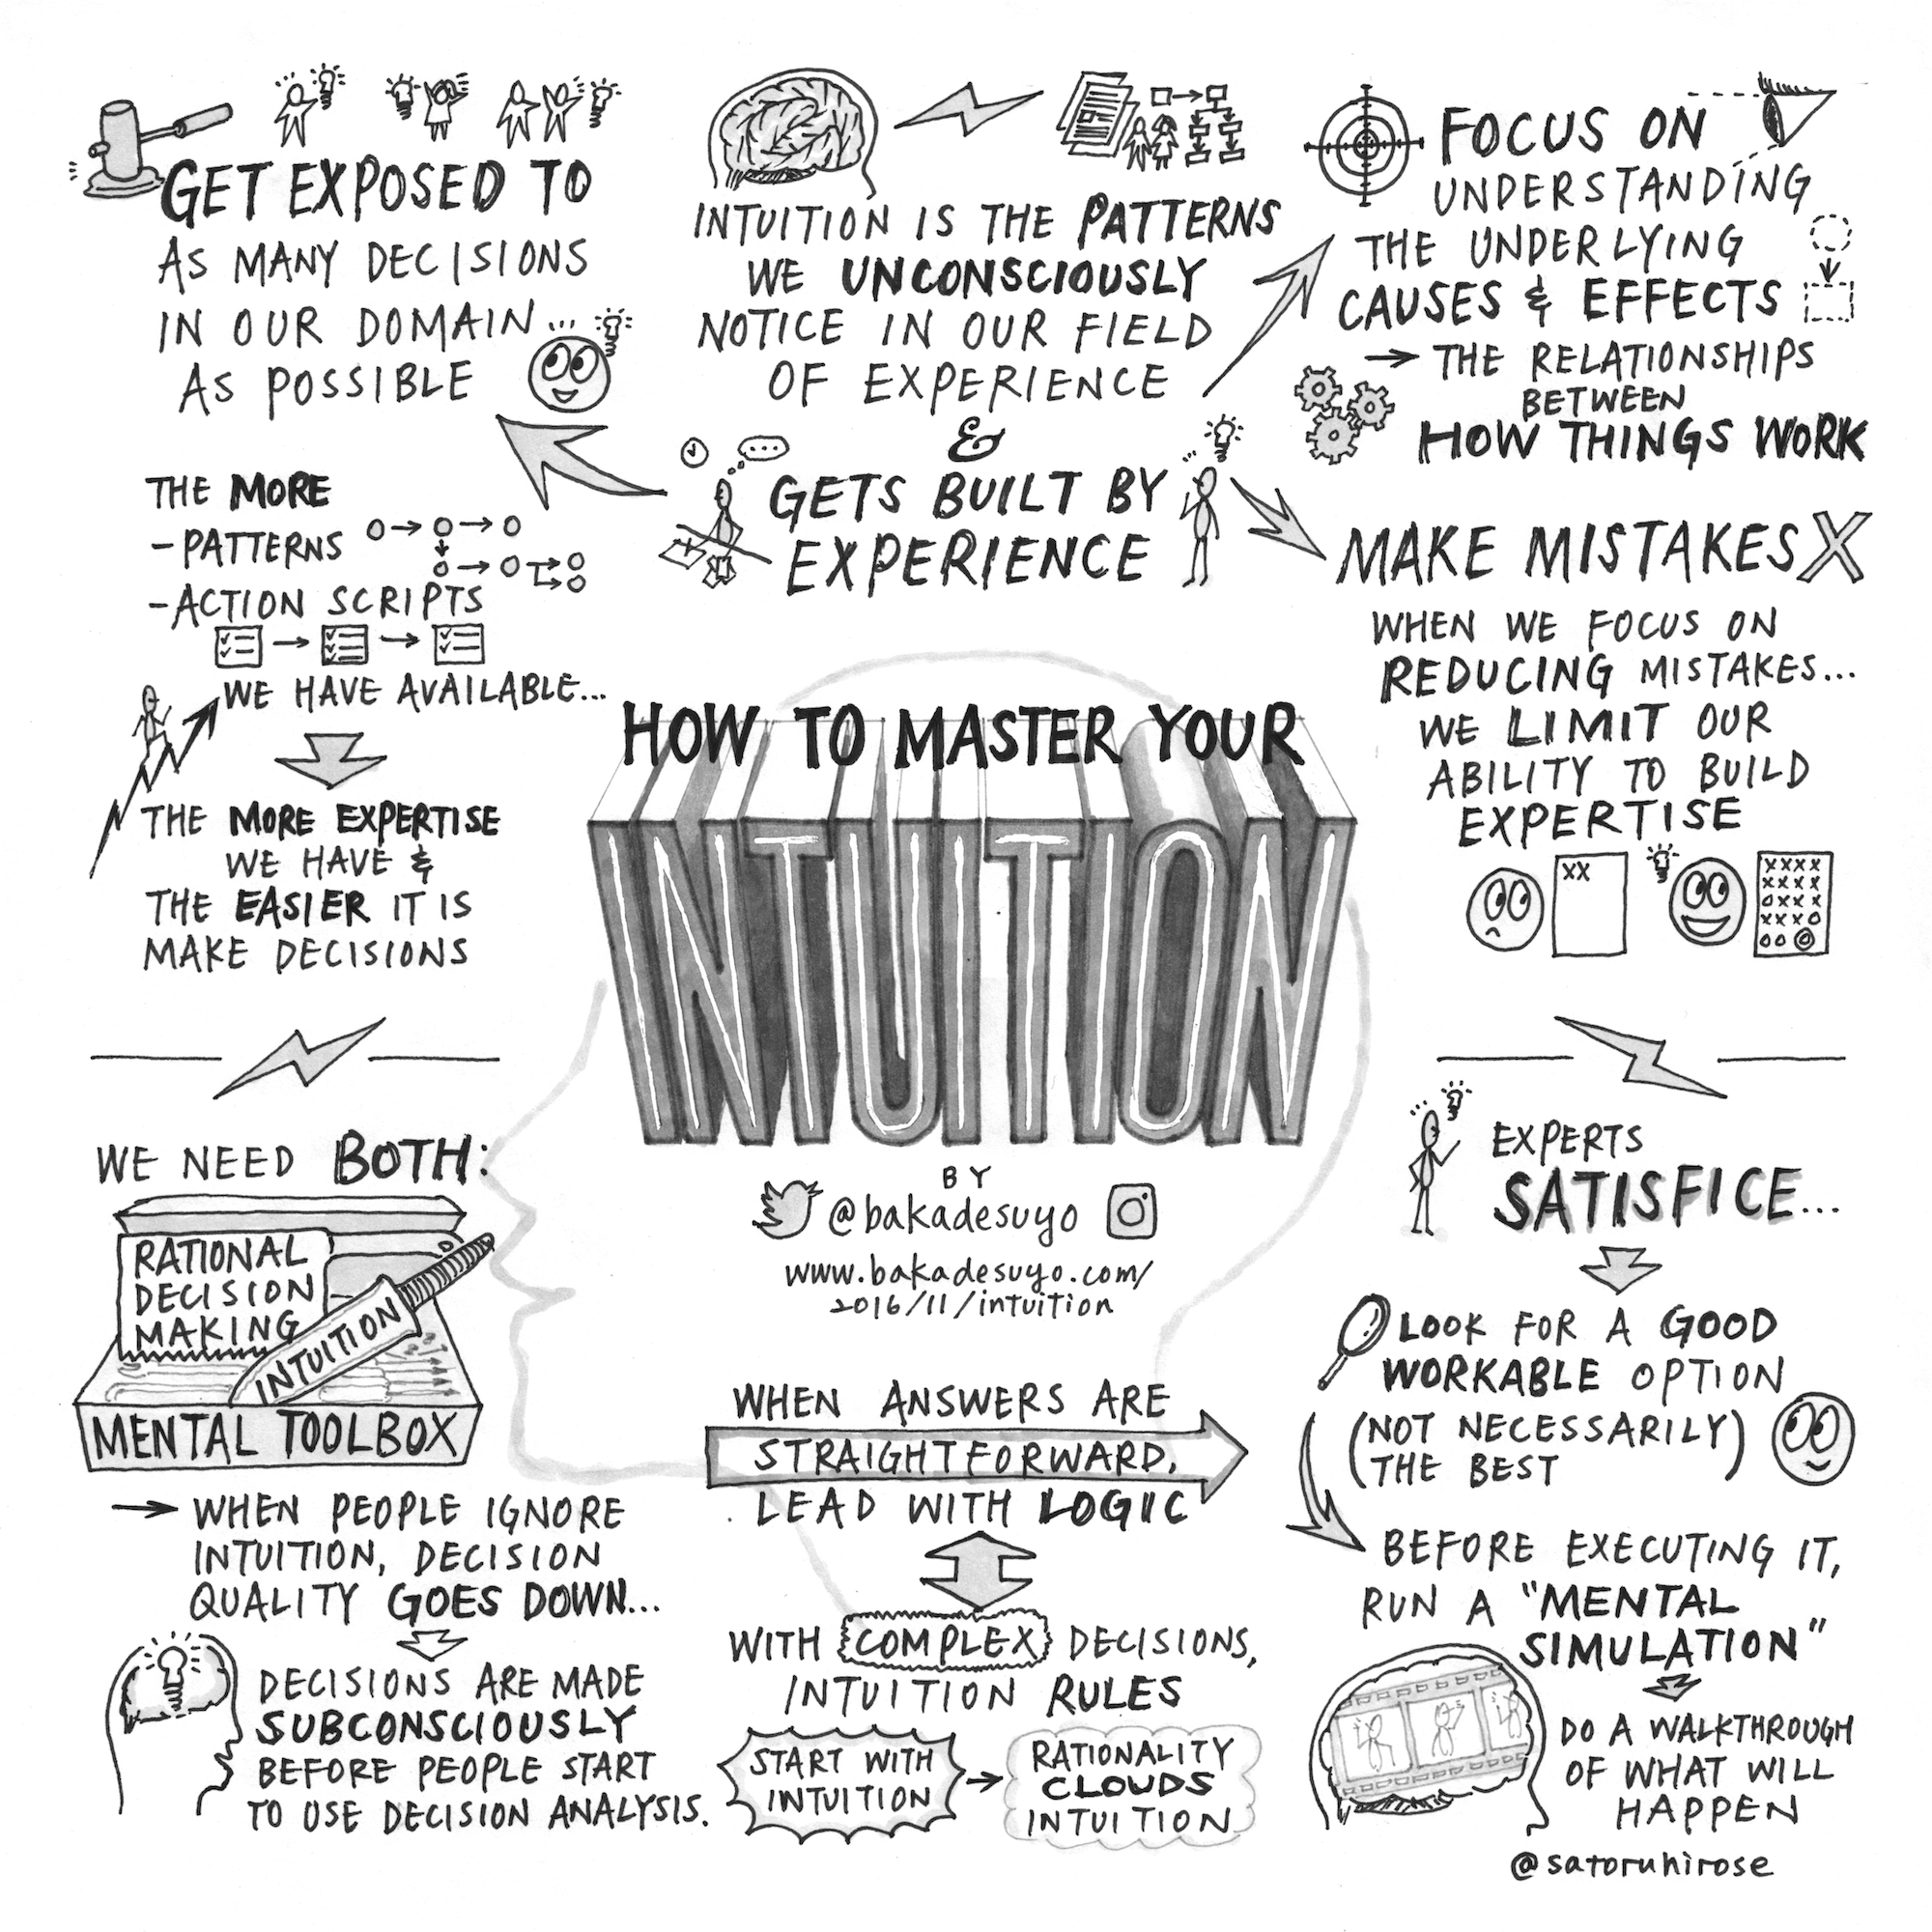 GET EXPOSED TO
AS MANY DECISIONS
IN OUR DOMAIN
AS POSSIBLE
THE MORE
- PATTERNS
- ACTION SCRIPTS
WE HAVE AVAILABLE...
THE MORE EXPERTISE
WE HAVE &
THE EASIER IT IS
MAKE DECISIONS
INTUITION IS THE PATTERNS
WE UNCONSCIOUSLY
NOTICE IN OUR FIELD
OF EXPERIENCE
&
GETS BUILT BY
EXPERIENCE
FOCUS ON
UNDERSTANDING
THE UNDERLYING
CAUSES & EFFECTS
→ THE RELATIONSHIPS
BETWEEN
HOW THINGS WORK
MAKE MISTAKES X
WHEN WE FOCUS ON
REDUCING MISTAKES...
WE LIMIT OUR
ABILITY TO BUILD
EXPERTISE
XX
XXXX
XXXX
OXXX
XXXO
OOO
HOW TO MASTER YOUR
INTUITION
BY
@bakadesuyo
www.bakadesuyo.com/
2016/11/intuition
WE NEED BOTH:
RATIONAL
DECISION
MAKING
INTUITION
MENTAL TOOLBOX
→ WHEN PEOPLE IGNORE
INTUITION, DECISION
QUALITY GOES DOWN...
DECISIONS ARE MADE
SUBCONSCIOUSLY
BEFORE PEOPLE START
TO USE DECISION ANALYSIS.
WHEN ANSWERS ARE
STRAIGHTFORWARD,
LEAD WITH LOGIC
WITH COMPLEX DECISIONS,
INTUITION RULES
START WITH
INTUITION
→ RATIONALITY
CLOUDS
INTUITION
EXPERTS
SATISFICE...
LOOK FOR A GOOD
WORKABLE OPTION
(NOT NECESSARILY)
THE BEST
BEFORE EXECUTING IT,
RUN A "MENTAL
SIMULATION"
DO A WALKTHROUGH
OF WHAT WILL
HAPPEN
@satoruhirose